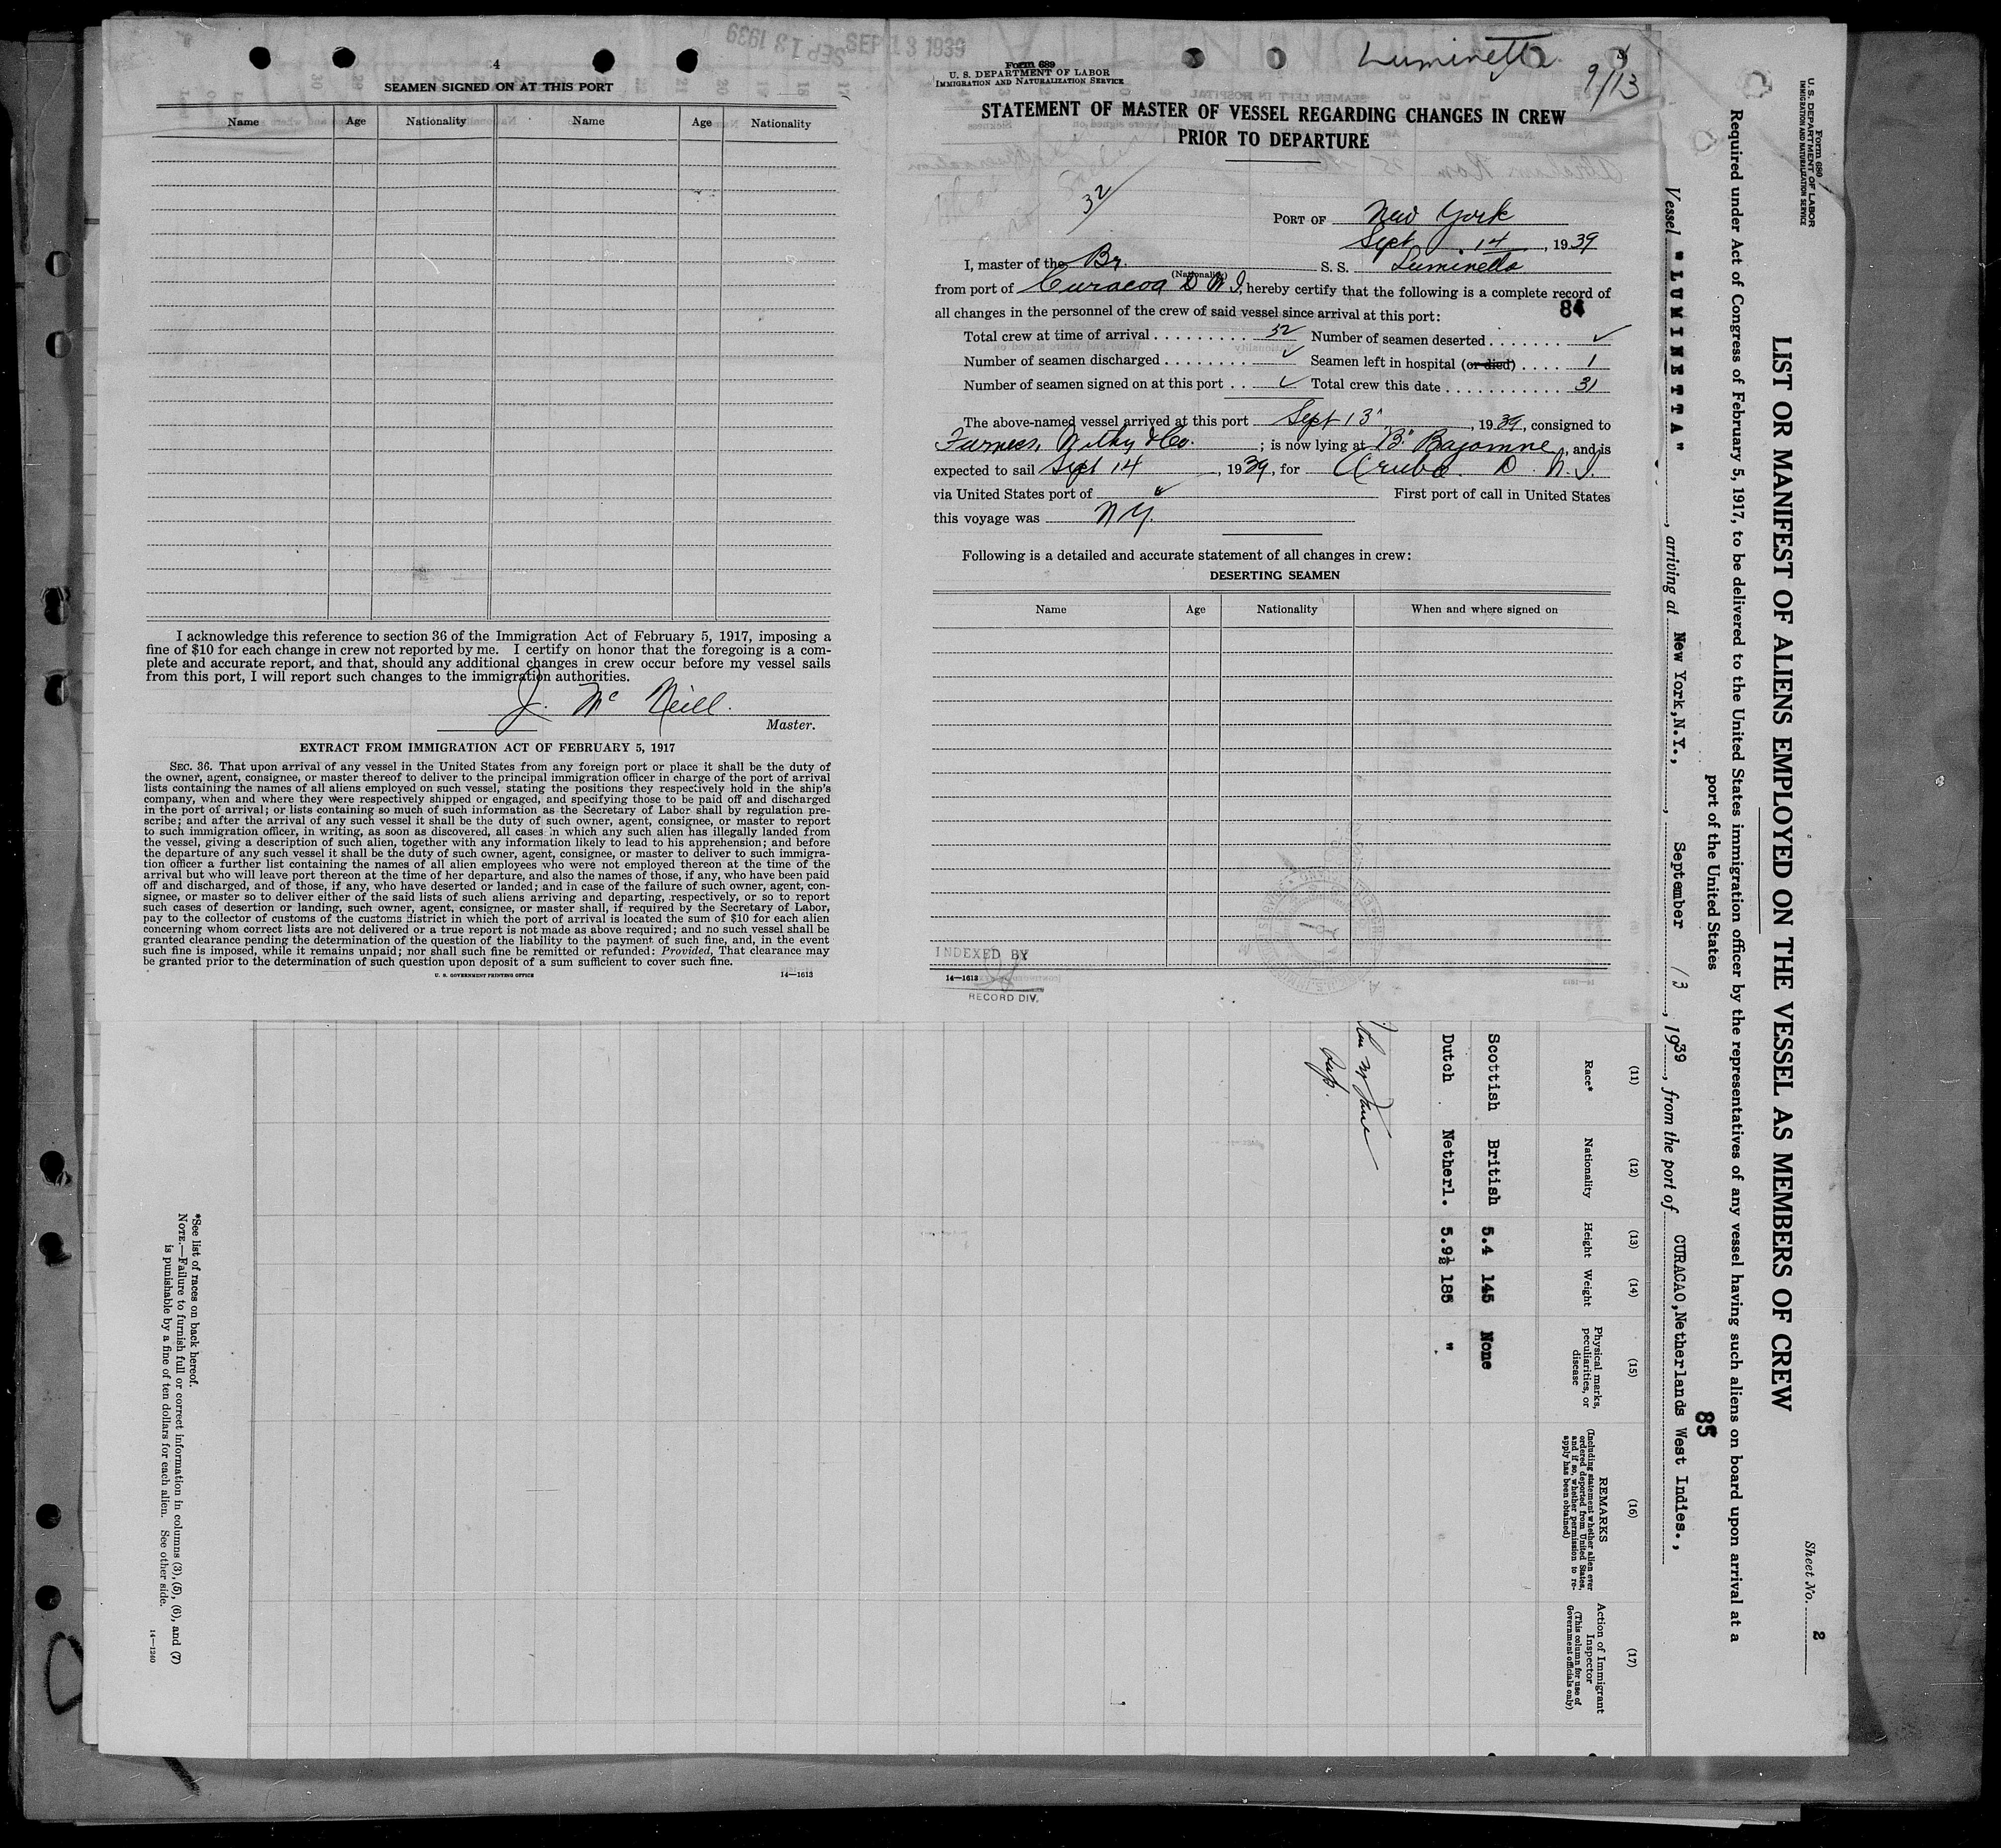 SEP 13 1939
SEP 13 1939
4
SEAMEN SIGNED ON AT THIS PORT
Name Age Nationality Name Age Nationality
I acknowledge this reference to section 36 of the Immigration Act of February 5, 1917, imposing a
fine of $10 for each change in crew not reported by me. I certify on honor that the foregoing is a com-
plete and accurate report, and that, should any additional changes in crew occur before my vessel sails
from this port, I will report such changes to the immigration authorities.
J. Mc Neill.
Master.
EXTRACT FROM IMMIGRATION ACT OF FEBRUARY 5, 1917
SEC. 36. That upon arrival of any vessel in the United States from any foreign port or place it shall be the duty of
the owner, agent, consignee, or master thereof to deliver to the principal immigration officer in charge of the port of arrival
lists containing the names of all aliens employed on such vessel, stating the positions they respectively hold in the ship's
company, when and where they were respectively shipped or engaged, and specifying those to be paid off and discharged
in the port of arrival; or lists containing so much of such information as the Secretary of Labor shall by regulation pre-
scribe; and after the arrival of any such vessel it shall be the duty of such owner, agent, consignee, or master to report
to such immigration officer, in writing, as soon as discovered, all cases in which any such alien has illegally landed from
the vessel, giving a description of such alien, together with any information likely to lead to his apprehension; and before
the departure of any such vessel it shall be the duty of such owner, agent, consignee, or master to deliver to such immigra-
tion officer a further list containing the names of all alien employees who were not employed thereon at the time of the
arrival but who will leave port thereon at the time of her departure, and also the names of those, if any, who have been paid
off and discharged, and of those, if any, who have deserted or landed; and in case of the failure of such owner, agent, con-
signee, or master so to deliver either of the said lists of such aliens arriving and departing, respectively, or so to report
such cases of desertion or landing, such owner, agent, consignee, or master shall, if required by the Secretary of Labor,
pay to the collector of customs of the customs district in which the port of arrival is located the sum of $10 for each alien
concerning whom correct lists are not delivered or a true report is not made as above required; and no such vessel shall be
granted clearance pending the determination of the question of the liability to the payment of such fine, and, in the event
such fine is imposed, while it remains unpaid; nor shall such fine be remitted or refunded: Provided, That clearance may
be granted prior to the determination of such question upon deposit of a sum sufficient to cover such fine.
U. S. GOVERNMENT PRINTING OFFICE 14—1613
Form 689
U. S. DEPARTMENT OF LABOR
IMMIGRATION AND NATURALIZATION SERVICE
Luminetta
9/13
STATEMENT OF MASTER OF VESSEL REGARDING CHANGES IN CREW
PRIOR TO DEPARTURE
32
PORT OF New York
Sept 14, 1939
I, master of the Br. S. S. Luminetta
(Nationality)
from port of Curacoa D W I, hereby certify that the following is a complete record of
84
all changes in the personnel of the crew of said vessel since arrival at this port:
Total crew at time of arrival 32 Number of seamen deserted ✓
Number of seamen discharged ✓ Seamen left in hospital (or died) 1
Number of seamen signed on at this port ✓ Total crew this date 31
The above-named vessel arrived at this port Sept 13, 1939, consigned to
Furness, Withy & Co. ; is now lying at Bayonne, and is
expected to sail Sept 14, 1939, for Aruba D. W. I.
via United States port of ✓ First port of call in United States
this voyage was N Y.
Following is a detailed and accurate statement of all changes in crew:
DESERTING SEAMEN
Name Age Nationality When and where signed on
INDEXED BY
14—1613
RECORD DIV.
Form 680
U. S. DEPARTMENT OF LABOR
IMMIGRATION AND NATURALIZATION SERVICE
Sheet No. 2
LIST OR MANIFEST OF ALIENS EMPLOYED ON THE VESSEL AS MEMBERS OF CREW
Required under Act of Congress of February 5, 1917, to be delivered to the United States immigration officer by the representatives of any vessel having such aliens on board upon arrival at a
port of the United States
85
Vessel "LUMINETTA", arriving at New York, N.Y., September 13, 1939, from the port of CURACAO, Netherlands West Indies.,
(11) (12) (13) (14) (15) (16) (17)
Race* Nationality Height Weight Physical marks, peculiarities, or disease REMARKS (Including statement whether alien ever ordered deported from United States, and if so, whether permission to re-apply has been obtained) Action of Immigrant Inspector (This column for use of Government officials only)
Scottish British 5.4 145 None
Dutch Netherl. 5.9½ 185 "
*See list of races on back hereof.
NOTE.—Failure to furnish full or correct information in columns (3), (5), (6), and (7)
is punishable by a fine of ten dollars for each alien. See other side.
14—1240